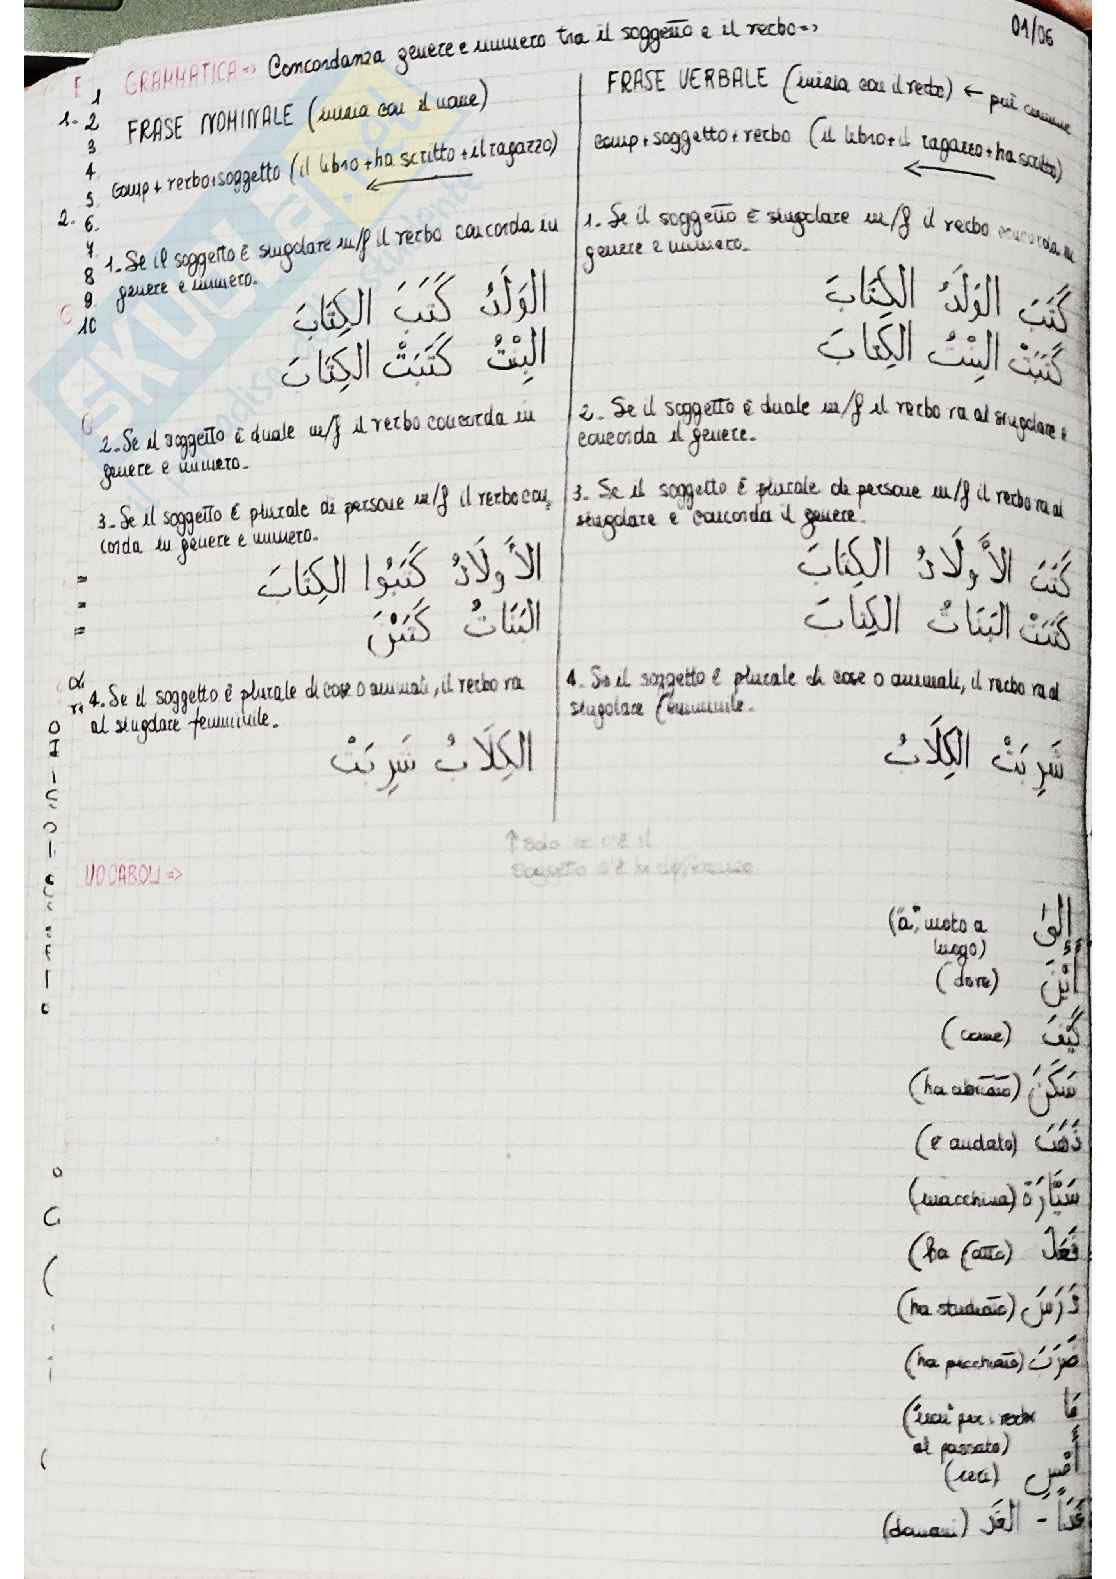 01/06
GRAMMATICA => Concordanza genere e numero tra il soggetto e il verbo =>
1
2
3
4
5
6
7
8
9
10
1-
2-
FRASE NOMINALE (inizia con il nome)
comp + verbo + soggetto (il libro + ha scritto + il ragazzo)
1- Se il soggetto è singolare m/f il verbo concorda in
genere e numero.
الوَلَدُ كَتَبَ الكِتَابَ
البِنْتُ كَتَبَتْ الكِتَابَ
2- Se il soggetto è duale m/f il verbo concorda in
genere e numero.
3- Se il soggetto è plurale di persone m/f il verbo con
corda in genere e numero.
الأَولَادُ كَتَبُوا الكِتَابَ
البَنَاتُ كَتَبْنَ
4. Se il soggetto è plurale di cose o animali, il verbo va
al singolare femminile.
الكِلَابُ شَرِبَتْ
FRASE VERBALE (inizia con il verbo) ← più comune
comp + soggetto + verbo (il libro + il ragazzo + ha scritto)
1. Se il soggetto è singolare m/f il verbo concorda in
genere e numero.
كَتَبَ الوَلَدُ الكِتَابَ
كَتَبَتْ البِنْتُ الكِتَابَ
2. Se il soggetto è duale m/f il verbo va al singolare e
concorda il genere.
3. Se il soggetto è plurale di persone m/f il verbo va al
singolare e concorda il genere.
كَتَبَ الأَولَادُ الكِتَابَ
كَتَبَتْ البَنَاتُ الكِتَابَ
4. Se il soggetto è plurale di cose o animali, il verbo va al
singolare femminile.
شَرِبَتْ الكِلَابُ
↑ solo se c'è il
soggetto c'è
VOCABOLI =>
إِلَى ("a", moto a
luogo)
أَيْنَ (dove)
كَيْفَ (come)
سَكَنَ (ha abitato)
ذَهَبَ (è andato)
سَيَّارَة (macchina)
فَعَلَ (ha fatto)
دَرَسَ (ha studiato)
ضَرَبَ (ha picchiato)
مَا ("non" per i verbi
al passato)
أَمْسِ (ieri)
غَدًا - الغَد (domani)
SKUOLA.net